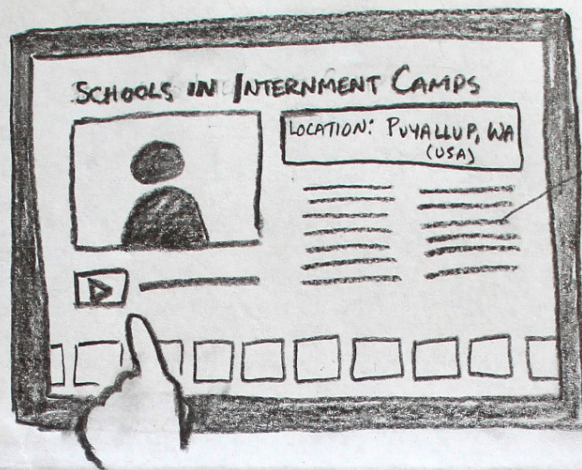 SCHOOLS IN INTERNMENT CAMPS
LOCATION: PUYALLUP, WA
(USA)